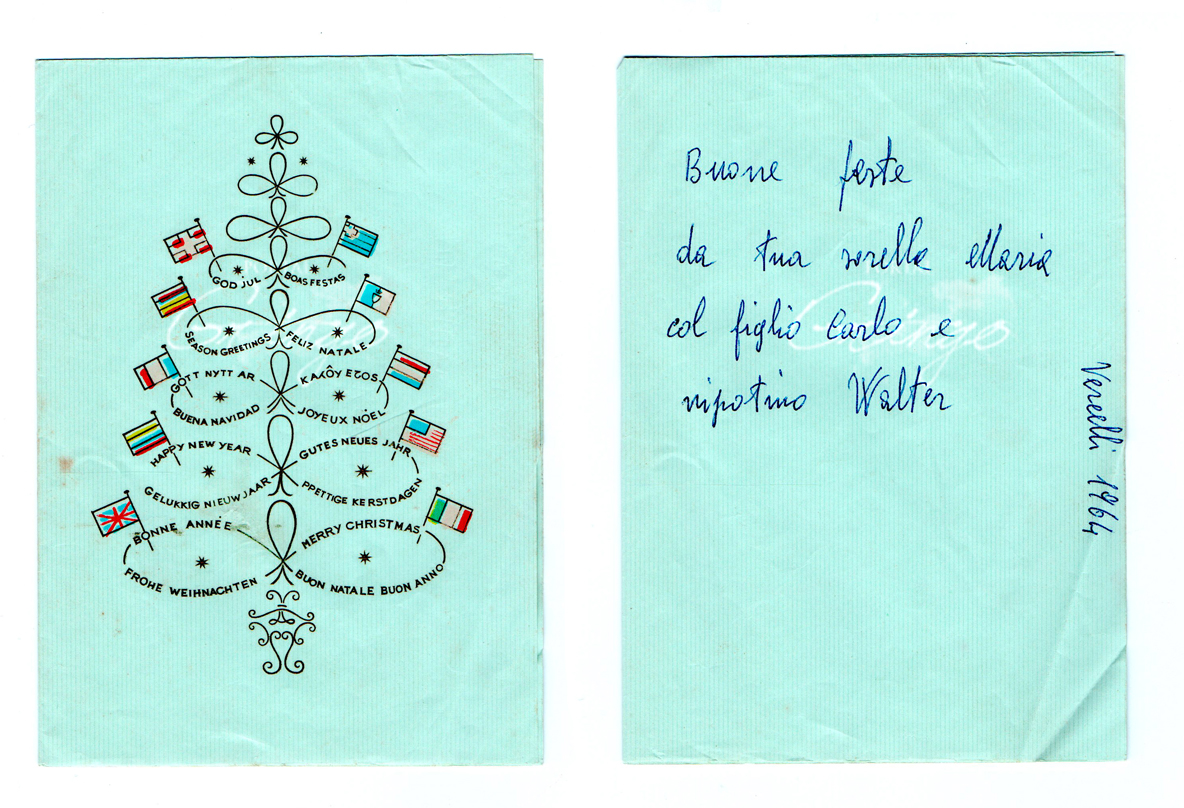 GOD JUL
BOAS FESTAS
SEASON GREETINGS
FELIZ NATALE
GOTT NYTT AR
ΚΑΛΟΥ ΕΤΟΣ
BUENA NAVIDAD
JOYEUX NOEL
HAPPY NEW YEAR
GUTES NEUES JAHR
GELUKKIG NIEUWJAAR
PPETTIGE KERSTDAGEN
BONNE ANNÉE
MERRY CHRISTMAS
FROHE WEIHNACHTEN
BUON NATALE BUON ANNO
Buone feste
da tua sorella Maria
col figlio Carlo e
nipotino Walter
Vercelli 1964